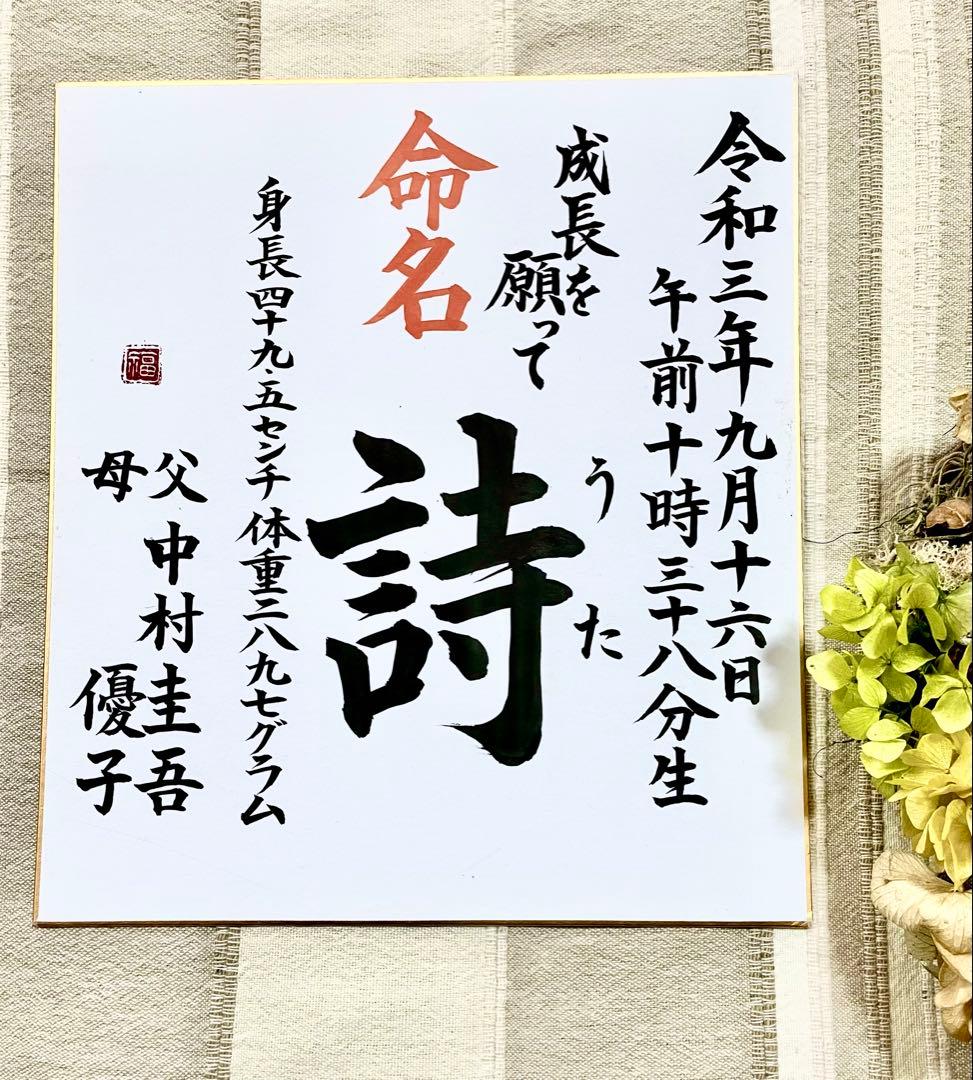 令和三年九月十六日
午前十時三十八分生
成長を
願って
うた
命名
詩
身長四十九.五センチ 体重二八九七グラム
父 中村圭吾
母 優子
福